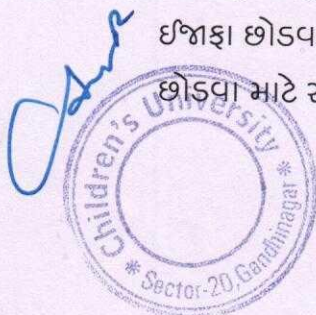 ઈજાફા છોડવ
છોડવા માટે
Children's University
* Sector-20, Gandhinagar *